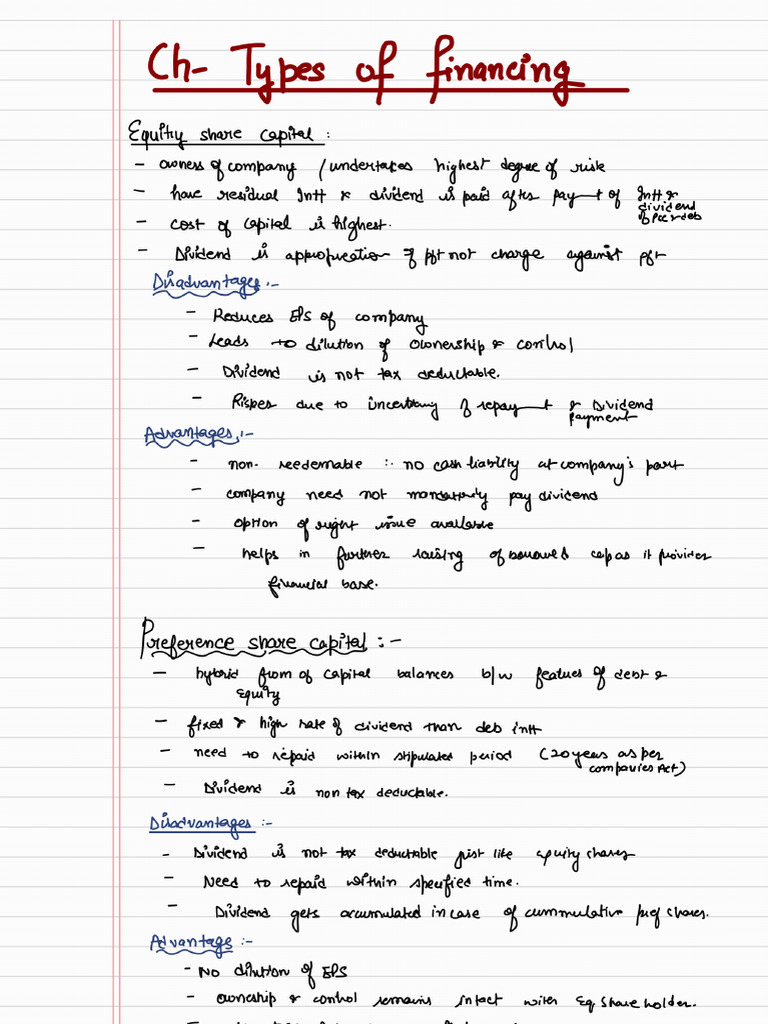 Ch- Types of financing
Equity share capital :
- owners of company / undertakes highest degree of risk
- have residual Intt & dividend is paid after payt of Intt & dividend of pec & deb
- cost of capital is highest.
- Dividend is appropriation of pft not charge against pft
Disadvantages :-
- Reduces EPS of company
- Leads to dilution of ownership & control
- Dividend is not tax deductable.
- due to of repayt & Dividend payment
Advantages :-
- non- reedemable :- no cash liability at company's part
- company need not mandatorily pay dividend
- option of right issue available
- helps in further raising of borrowed cap as it provides
financial base.
Preference share capital :-
- hybrid from of capital balances b/w featues of debt &
Equity
- fixed & high rate of dividend than deb intt
- need to repaid within stipulated period (20 years as per
companies Act)
- Dividend is non tax deductable.
Disadvantages :-
- Dividend is not tax deductable just like equity shares
- Need to repaid within specified time.
- Dividend gets accumulated in case of cummulative pref shares.
Advantage :-
- No dilution of EPS
- ownership & control remains intact with Eq share holder.